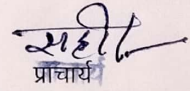 सही/-
प्राचार्य